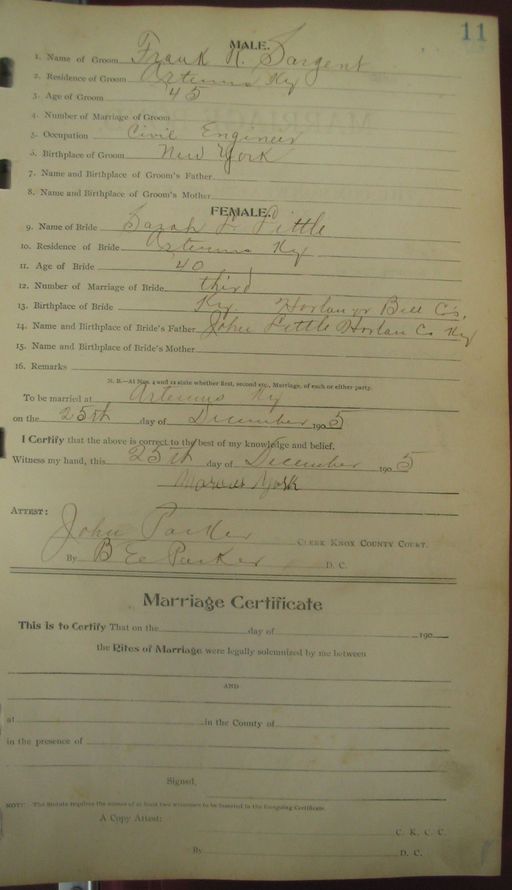 11
MALE.
1. Name of Groom Frank R. Sargent
2. Residence of Groom Artemus Ky
3. Age of Groom 45
4. Number of Marriage of Groom
5. Occupation Civil Engineer
6. Birthplace of Groom New York
7. Name and Birthplace of Groom's Father
8. Name and Birthplace of Groom's Mother
FEMALE.
9. Name of Bride Sarah F. Little
10. Residence of Bride Artemus Ky
11. Age of Bride 40
12. Number of Marriage of Bride third
13. Birthplace of Bride Ky Horlan or Bell Co's.
14. Name and Birthplace of Bride's Father John Little Horlan Co Ky
15. Name and Birthplace of Bride's Mother
16. Remarks
N. B.—At Nos. 4 and 12 state whether first, second etc., Marriage, of each or either party.
To be married at Artemus Ky
on the 25th day of December 1905
I Certify that the above is correct to the best of my knowledge and belief.
Witness my hand, this 25th day of December 1905
York
ATTEST:
John Parker CLERK KNOX COUNTY COURT.
By B Ee Parker D. C.
Marriage Certificate
This is to Certify That on the day of 190
the Rites of Marriage were legally solemnized by me between
AND
at in the County of
in the presence of
Signed,
NOTE: The Statute requires the names of at least two witnesses to be inserted in the foregoing Certificate.
A Copy Attest:
C. K. C. C.
By D. C.